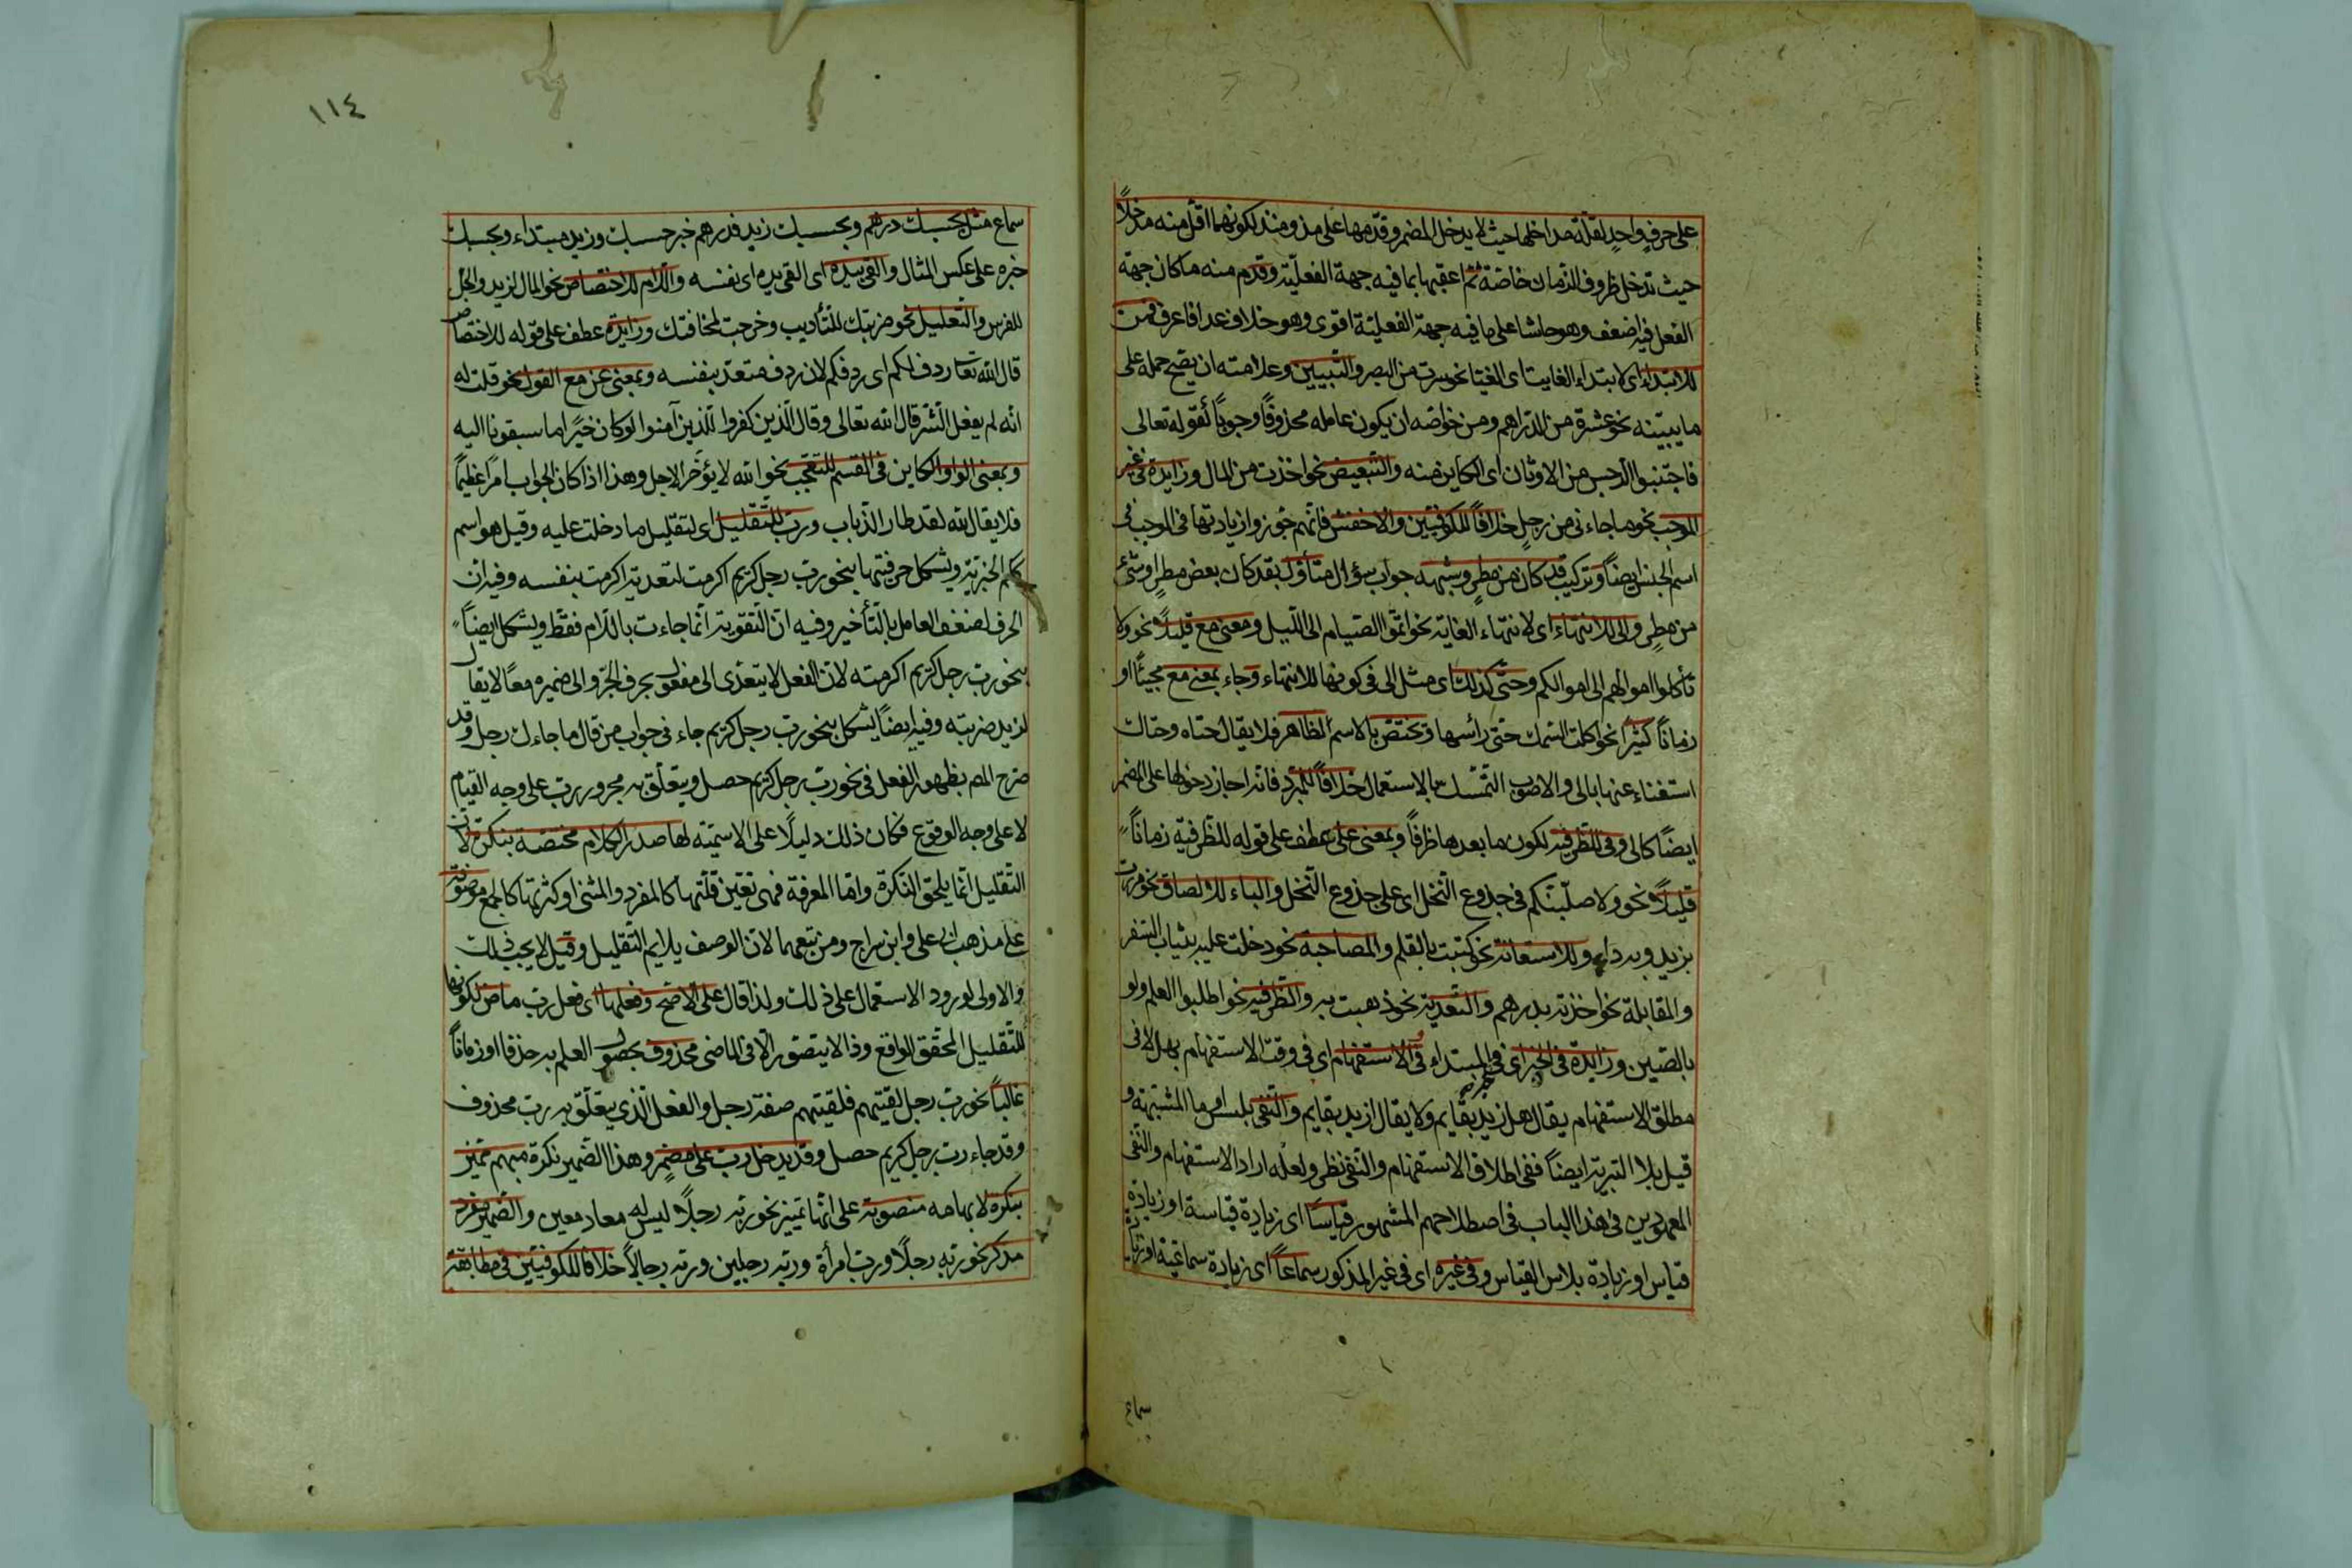 على حرفٍ واحدٍ لقلة مداخلها حيث لا يدخل المضمر وقدمها على مذ ومنذ لكونهما اقل منه مدخلاً
حيث تدخل ظروف الزمان خاصة ثم اعقبها بما فيه جهة الفعلية وقدم منه ما كان جهة
الفعل فيه اضعف وهو حاشا على ما فيه جهة الفعلية اقوى وهو خلا وعدا فاعرف فمن
للابتداء اى لابتداء الغاية نحو سرت من البصرة والتبيين وعلامته ان يصح حمله على
ما يبينه نحو عشرة من الدراهم ومن خواصه ان يكون عامله محذوفاً وجوباً كقوله تعالى
فاجتنبوا الرجس من الاوثان اى الكاين منه والتبعيض نحو اخذت من المال وزايدة فى غير
الموجب نحو ما جاءنى من رجل خلافاً للكوفيين والاخفش فانهم جوزوا زيادتها فى الموجب فى
اسم الجنس ايضاً وتركيب قد كان من مطرٍ وشبهه جواب سؤال متأول بقد كان بعض مطر او شئ
من مطرٍ والى للانتهاء اى لانتهاء الغاية نحو اتموا الصيام الى الليل ومعنى مع قليلاً نحو ولا
تأكلوا اموالهم الى اموالكم وحتى كذلك اى مثل الى فى كونها للانتهاء وجاء بمعنى مع مجيئاً او
زماناً كثيراً نحو اكلت السمك حتى رأسها وتختص بالاسم الظاهر فلا يقال حتاه وحتاك
استغناء عنها بالى والاصوب التمسك بالاستعمال خلافاً للمبرد فانه اجاز دخولها على المضمر
ايضاً كالى وفى للظرفية لكون ما بعدها ظرفاً وبمعنى على عطف على قوله للظرفية زماناً
قليلاً نحو ولاصلبنكم فى جذوع النخل اى على جذوع النخل والباء للالصاق نحو مررت
بزيد وبه داء وللاستعانة نحو كتبت بالقلم والمصاحبة نحو دخلت عليه بثياب السفر
والمقابلة نحو اخذته بدرهم والتعدية نحو ذهبت به والظرفية نحو اطلبوا العلم ولو
بالصين وزايدة فى الخبر اى فى خبر المبتداء فى الاستفهام اى فى وقت الاستفهام بهل لا فى
مطلق الاستفهام يقال هل زيد بقايم ولا يقال ازيد بقايم والنفى بليس او بما المشبهة و
قيل بلا التبرية ايضاً ففى اطلاق الاستفهام والنفى نظر ولعله اراد الاستفهام والنفى
المعهودين فى هذا الباب فى اصطلاحهم المشهور قياساً اى زيادة قياسية او زيادة
قياس او زيادة بلابس القياس وفى غيره اى فى غير المذكور سماعاً اى زيادة سماعية او زيادة
سماع
١١٤
سماع مثل بحسبك درهم وبحسبك زيد فدرهم خبر حسبك وزيد مبتداء وبحسبك
خبره على عكس المثال والقى بيده اى القى يده اى نفسه واللام للاختصاص نحو المال لزيد والجل
للفرس والتعليل نحو ضربتك للتأديب وخرجت لمخافتك وزايدة عطف على قوله للاختصاص
قال الله تعا ردف لكم اى ردفكم لان ردف متعد بنفسه وبمعنى عن مع القول نحو قلت له
انه لم يفعل الشر قال الله تعالى وقال الذين كفروا للذين آمنوا لو كان خيراً ما سبقونا اليه
وبمعنى الواو الكاين فى القسم للتعجب نحو لله لا يؤخر الاجل وهذا اذا كان الجواب امراً عظيماً
فلا يقال لله لقد طار الذباب ورب للتقليل اى لتقليل ما دخلت عليه وقيل هو اسم
ككم الخبرية ويشكل حرفيتها بنحو رب رجل كريم اكرمت لتعدية اكرمت بنفسه وفيه ان
الحرف لضعف العامل بالتأخير وفيه ان التقوية انما جاءت باللام فقط ويشكل ايضاً
بنحو رب رجل كريم اكرمته لان الفعل لا يتعدى الى مفعول بحرف الجر والى ضميره معاً لا يقال
لزيد ضربته وفيه ايضاً يشكل بنحو رب رجل كريم جاء فى جواب من قال ما جاءك رجل وقد
صرح المص بظهور الفعل فى نحو رب رجل كريم حصل ويتعلق به مجرور رب على وجه القيام
لا على وجه الوقوع فكان ذلك دليلاً على الاسمية لها صدر الكلام مختصة بنكرة لان
التقليل انما يلحق النكرة واما المعرفة فهى تعين قلتها كالمفرد والمثنى او كثرتها كالجمع موصوفة
على مذهب ابى على وابن سراج ومن تبعهما لان الوصف يلايم التقليل وقيل لا يجب ذلك
والاولى لورود الاستعمال على ذلك ولذا قال على الاصح وفعلها اى فعل رب ماض لكونها
للتقليل المحقق الواقع وذا لا يتصور الا فى الماضى محذوف بحصول العلم به حذفا او زماناً
غالباً نحو رب رجل لقيتهم فلقيتهم صفة رجل والفعل الذى يتعلق به رب محذوف
وقد جاء رب رجل كريم حصل وقد يدخل رب على مضمرٍ وهذا الضمير نكرة مبهم مميز
بنكرة لابهامه منصوبة على انها تمييز نحو ربه رجلاً ليس له معاد معين والضمير مفرد
مذكر نحو ربه رجلاً ورب امرأة وربه رجلين وربه رجالاً خلافاً للكوفيين فى مطابقة